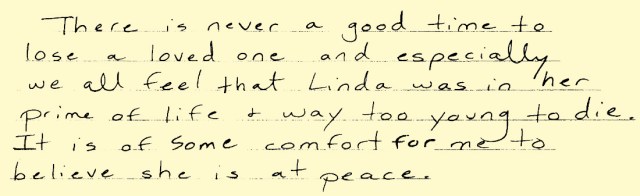 There is never a good time to
lose a loved one and especially
we all feel that Linda was in her
prime of life & way too young to die.
It is of some comfort for me to
believe she is at peace.